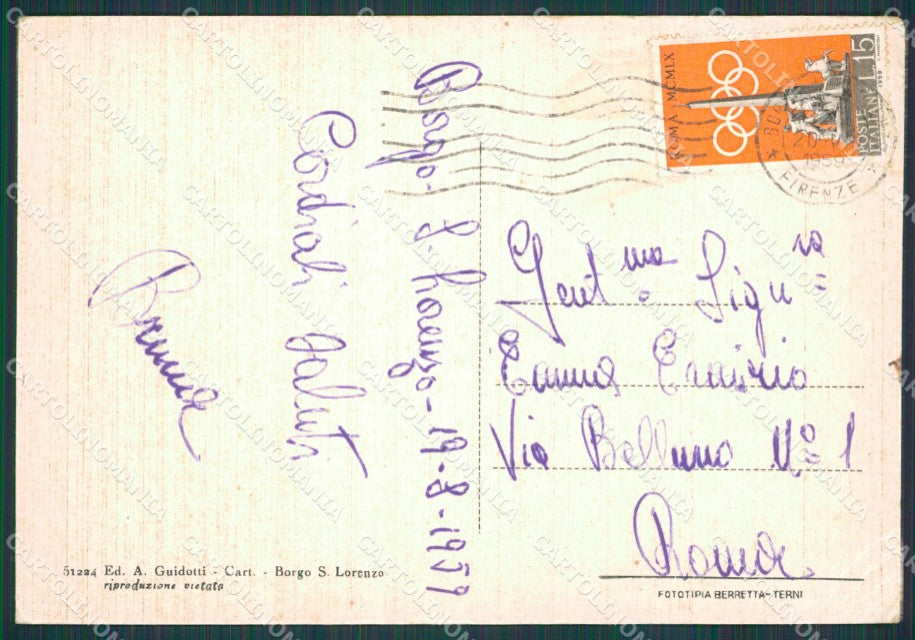 Borgo S. Lorenzo - 19-8-1959
Cordiali Saluti
Bruna
ROMA MCMLX
L.15
POSTE ITALIANE
1959
FIRENZE
Gent.ma Sign.ra
Emma
Via Belluno Nº 1
Roma
51224 Ed. A. Guidotti - Cart. - Borgo S. Lorenzo
riproduzione vietata
FOTOTIPIA BERRETTA-TERNI
CARTOLINOMANIA